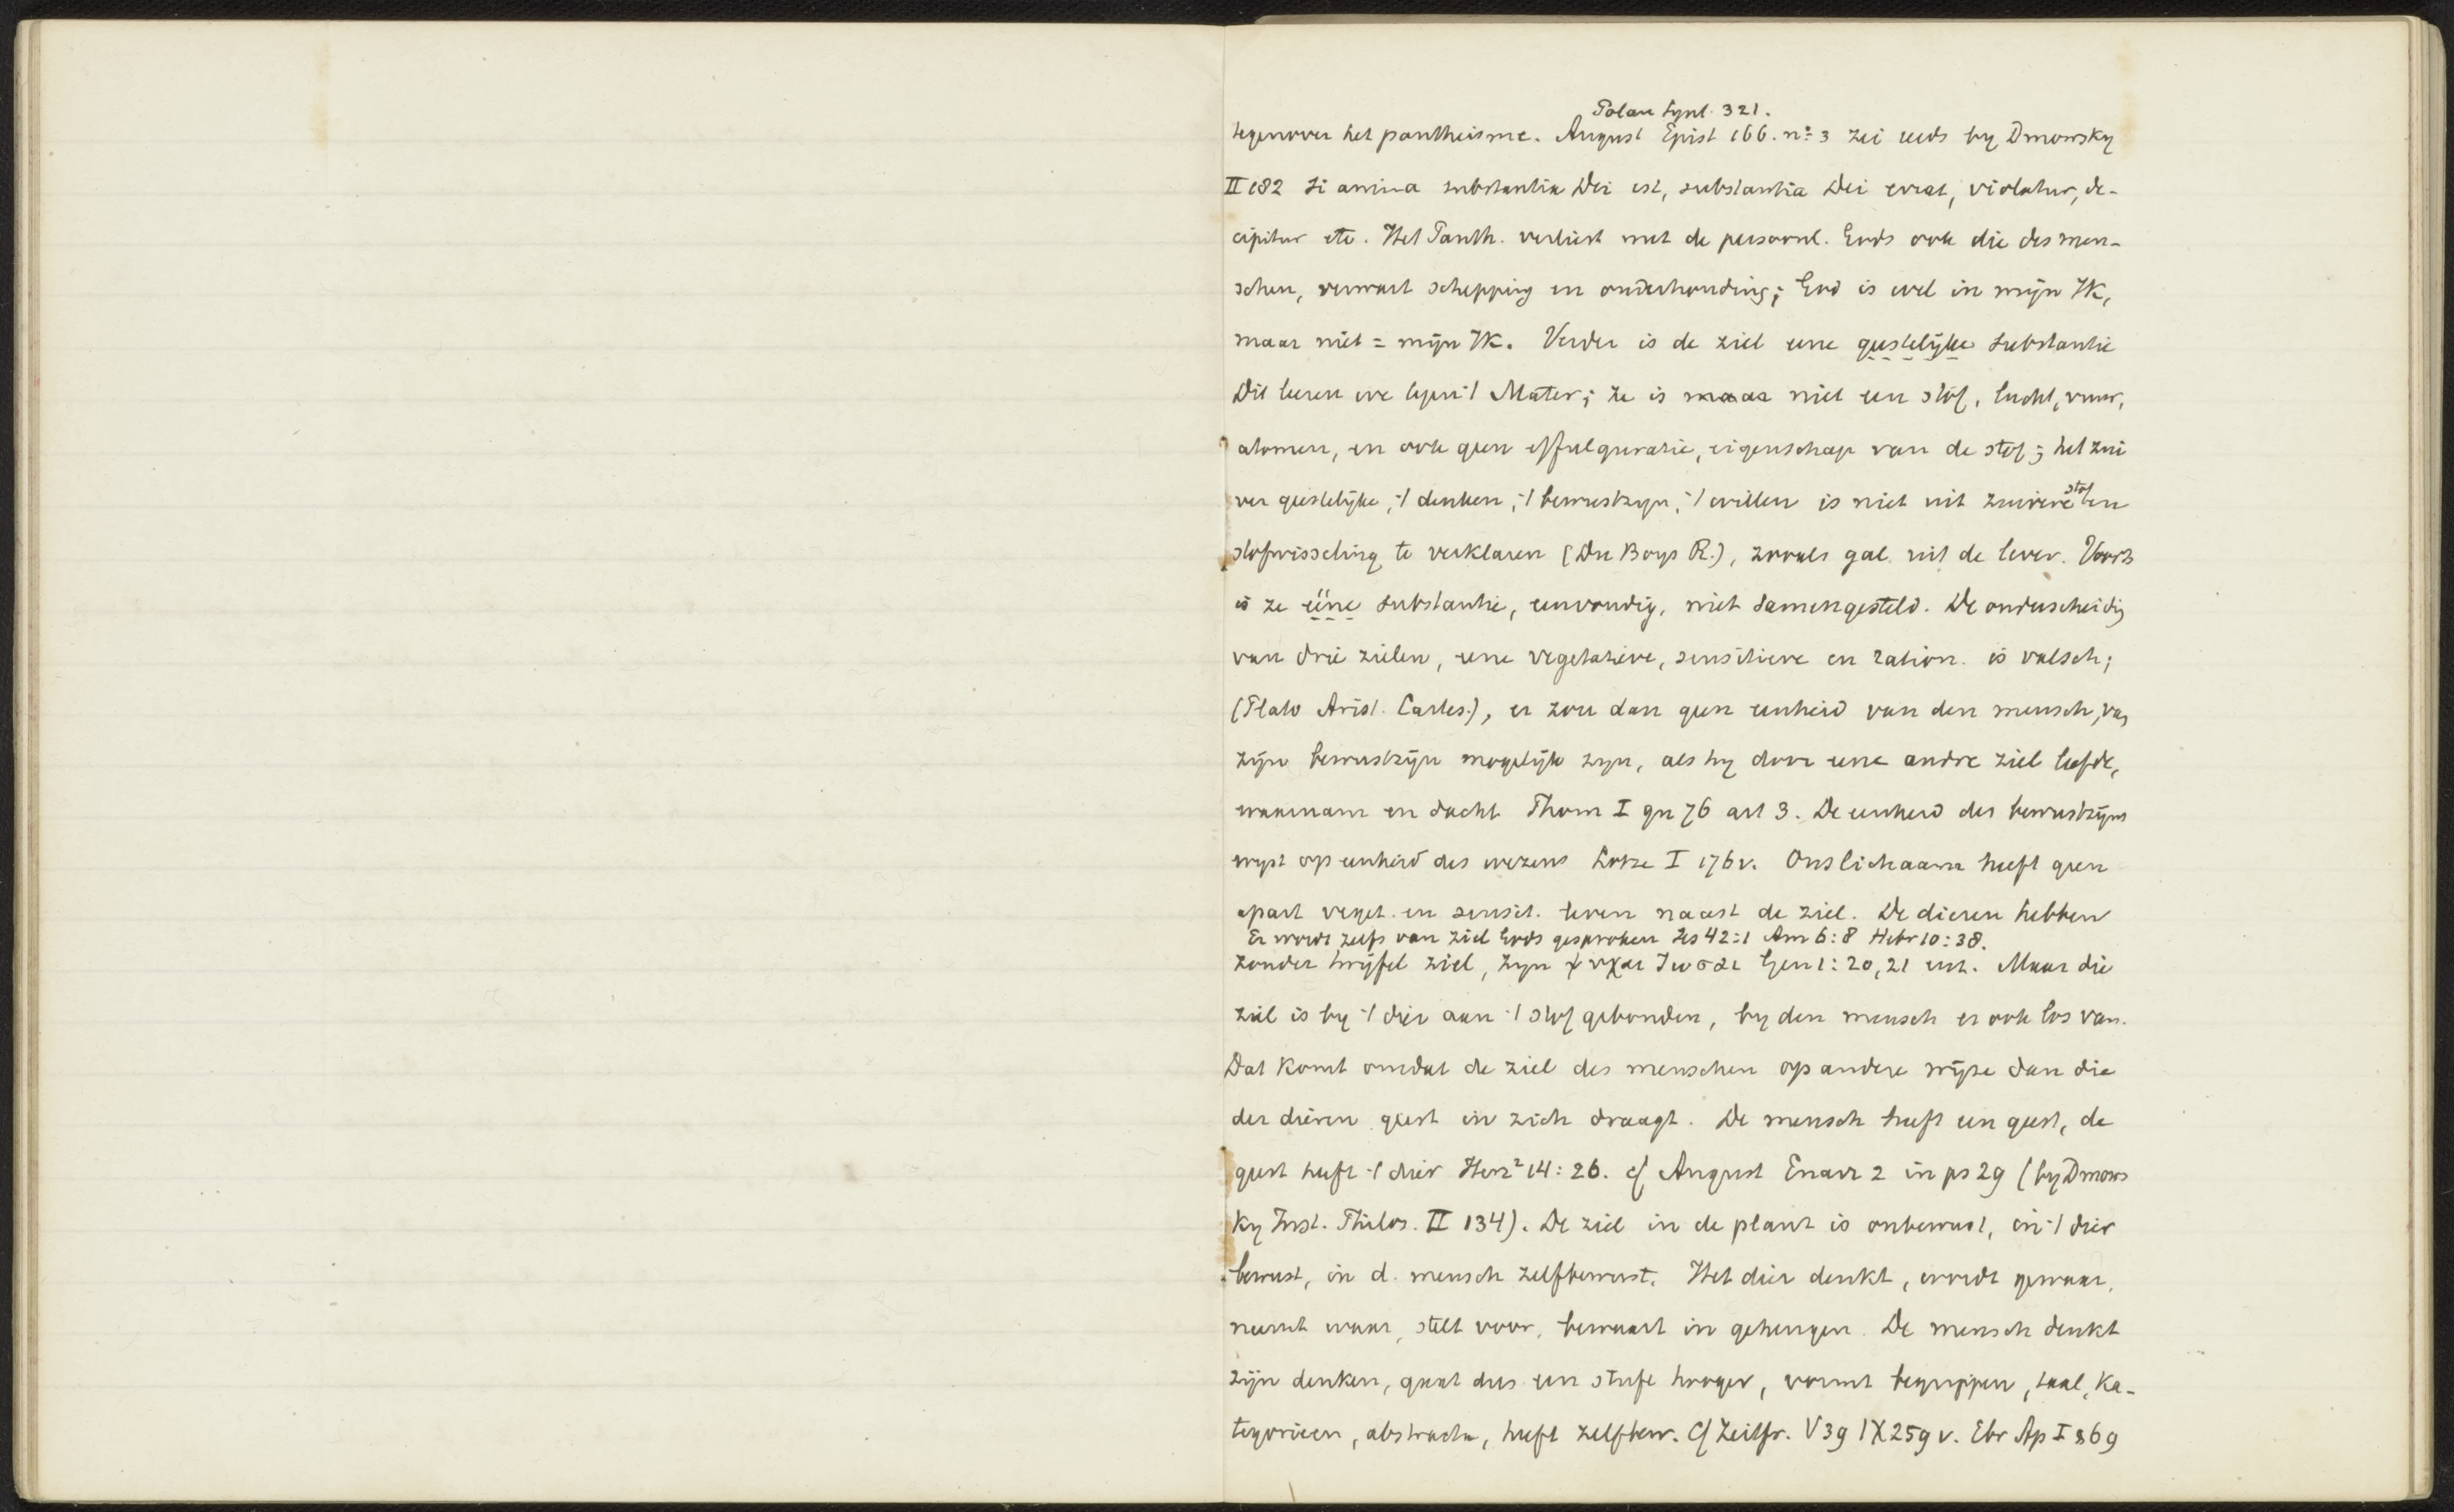 Polan Synt. 321.
tegenover het pantheisme. August Epist 166. no. 3 zei reeds by Dmowsky
II 182 Si anima substantia Dei est, substantia Dei errat, violatur, de-
cipitur etc. Het Panth. verliest met de persoonl. Gods ook die des men-
schen, verwart schepping en onderhouding; God is wel in mijn IK,
maar niet = mijn IK. Verder is de ziel eene geestelijke substantie
Dit leeren we tegen 't Mater; ze is maar niet een stof, lucht, vuur,
atomen, en ook geen effulguratie, eigenschap van de stof; het zui
ver geestelijke, 't denken, 't bewustzyn, 't willen is niet uit zuivere stof en
stofwisseling te verklaren (Du Boys R.), zooals gal uit de lever. Voorts
is ze ééne substantie, eenvoudig, niet samengesteld. De onderscheidig
van drie zielen, eene vegetatieve, sensitieve en ration. is valsch;
(Plato Arist. Cartes.), er zou dan geen eenheid van den mensch, van
zijn bewustzijn mogelijk zyn, als hy door eene andre ziel leefde,
waarnam en dacht Thom I qu 76 art 3. De eenheid des bewustzijns
wyst op eenheid des wezens Lotze I 176 v. Ons lichaam heeft geen
apart veget. en sensit. leven naast de ziel. De dieren hebben
Er wordt zelfs van ziel Gods gesproken Jes 42:1 Am 6:8 Hebr 10:38.
zonder twijfel ziel, zyn ψυχαι ζωσαι Gen 1:20, 21 enz. Maar die
ziel is by 't dier aan 't stof gebonden, by den mensch er ook los van.
Dat komt omdat de ziel des menschen op andere wijze dan die
der dieren geest in zich draagt. De mensch heeft een geest, de
geest heeft 't dier Herz² 14:26. cf August Enarr 2 in ps 29 (by Dmows
ky Inst. Philos. II 134). De ziel in de plant is onbewust, in 't dier
bewust, in d. mensch zelfbewust. Het dier denkt, wordt gewaar,
neemt waar, stelt voor, bewaart in geheugen. De mensch denkt
zijn denken, gaat dus een stufe hooger, vormt begrippen, taal, Ka-
tegorieen, abstracta, heeft zelfbew. Cf Zeitfr. V 39 IX 259 v. Ebr Ap I § 69